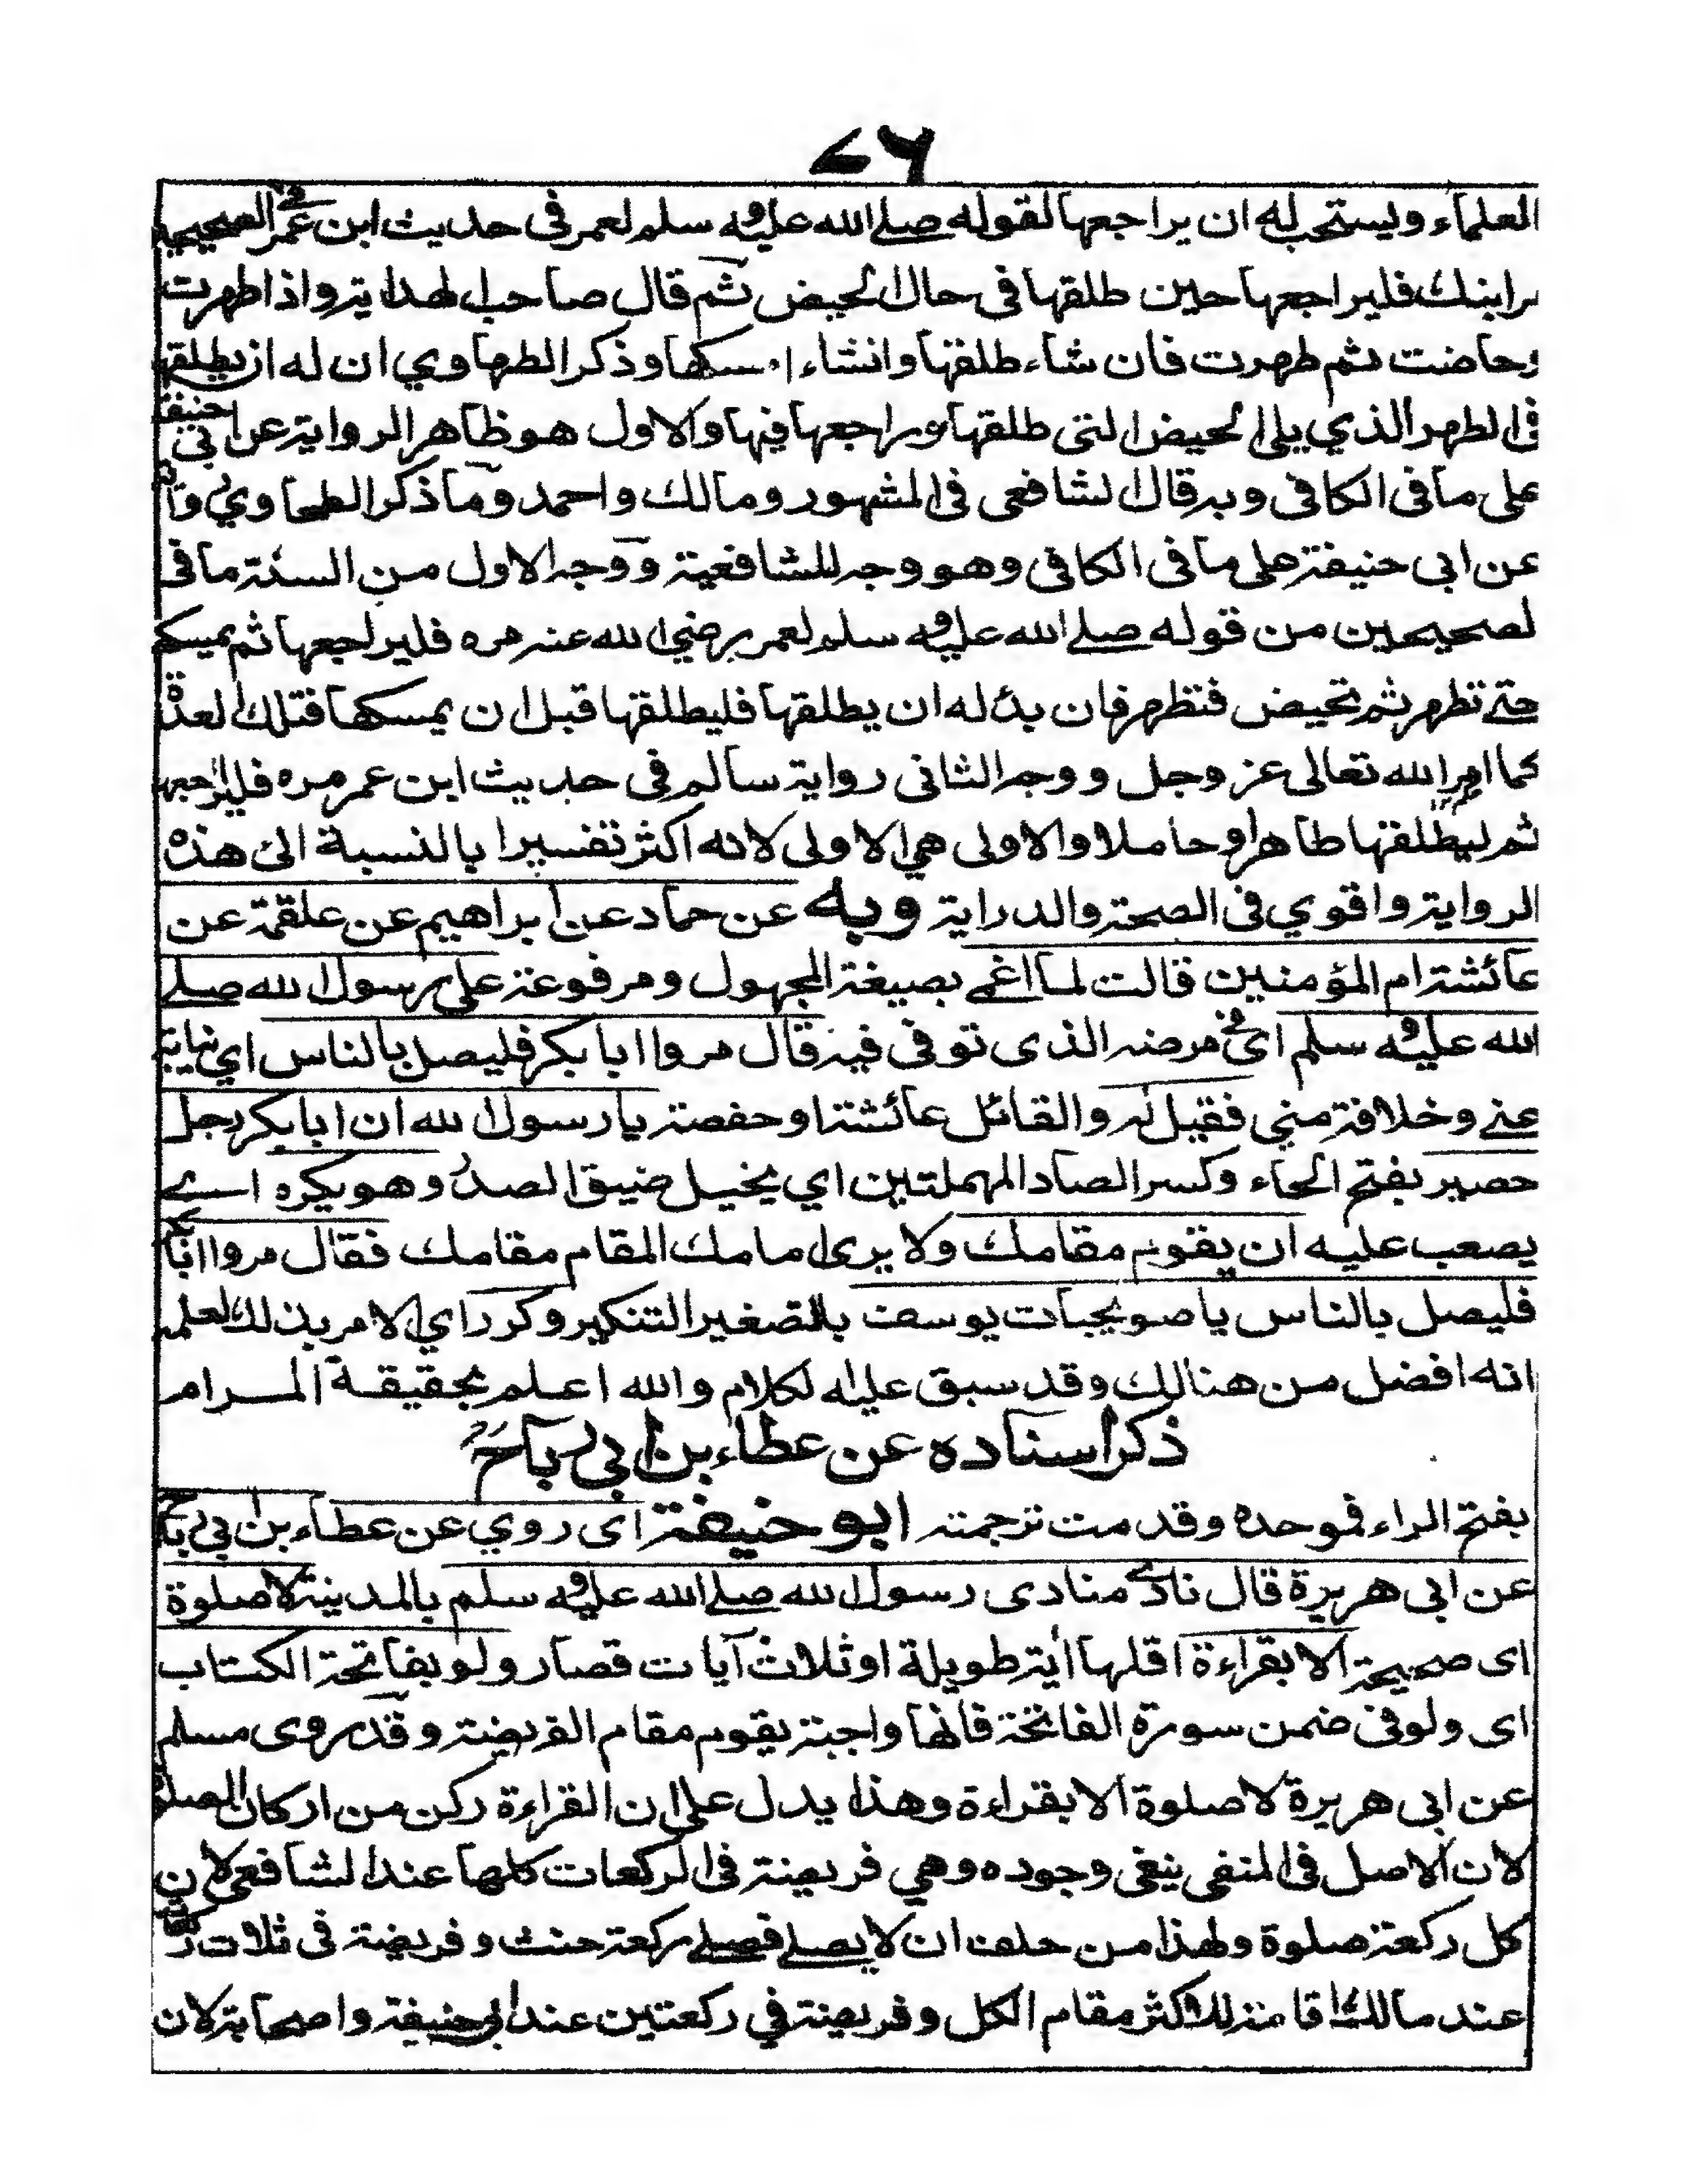 ٧٦
العلماء ويستحب له ان يراجعها لقوله صلے الله عليه و سلم لعمر فى حديث ابن عمر فى الصحيحين
مر ابنك فليراجعها حين طلقها فى حال الحيض ثم قال صاحب الهداية واذا طهرت
وحاضت ثم طهرت فان شاء طلقها وانشاء امسكها وذكر الطهاوي ان له ان يطلقها
فى الطهر الذي يلى الحيض التى طلقها وراجعها فيها والاول هو ظاهر الرواية عن ابي حنيفة
على ما فى الكافى وبه قال الشافعى فى المشهور ومالك واحمد وما ذكر الطحاوي
عن ابى حنيفة على ما فى الكافى وهو وجه للشافعية ووجه الاول من السنة ما فى
لصحيحين من قوله صلے الله عليه و سلم لعمر رضي الله عنه مره فليراجعها ثم يمسكها
حتے تطهر ثم تحيض فتظهر فان بدٔ له ان يطلقها فليطلقها قبل ان يمسكها فتلك العدة
كما امر الله تعالى عز وجل ووجه الثانى رواية سالم فى حديث ابن عمر مره فليراجعها
ثم ليطلقها طاهرا وحاملا والاولى هي الاولى لانه اكثر تفسيرا بالنسبة الى هذه
الرواية واقوي فى الصحة والدراية وبه عن حماد عن ابراهيم عن علقمة عن
عائشة ام المؤمنين قالت لما اغمى بصيغة المجهول ومرفوعة على رسول الله صلے
الله عليه و سلم اى فى مرضه الذى توفى فيه قال مروا ابا بكر فليصل بالناس اي نيابة
عنے وخلافة مني فقيل له والقائل عائشة او حفصة يا رسول الله ان ابا بكر رجل
حصير بفتح الحاء وكسر الصاد المهملتين اي يخيل ضيق الصدر وهو يكره اے
يصعب عليه ان يقوم مقامك ولا يرى امامك المقام مقامك فقال مروا ابا بكر
فليصل بالناس يا صويحبات يوسف بالتصغير التنكير وكرر اي الامر بذلك لعلمه
انه افضل من هنالك وقد سبق عليه لكلام والله اعلم بحقيقة المرام
ذكر اسناده عن عطاء بن ابي رباح
بفتح الراء فموحده وقدمت ترجمته ابو حنيفة اى روي عن عطاء بن ابي رباح
عن ابى هريرة قال نادے منادى رسول الله صلے الله عليه و سلم بالمدينة لا صلوة
اى صحيحة الا بقراءة اقلها اية طويلة او ثلاث آيات قصار ولو بفاتحة الكتاب
اى ولو فى ضمن سورة الفاتحة فانها واجبة يقوم مقام الفريضة وقد روى مسلم
عن ابى هريرة لا صلوة الا بقراءة وهذا يدل على ان القراءة ركن من اركان الصلوة
لان الاصل فى المنفى ينغى وجوده وهي فريضة فى الركعات كلها عند الشافعى لان
كل ركعة صلوة ولهذا من حلف ان لا يصلے فصلے ركعة حنث وفريضة فى ثلاث ركعات
عند مالك اقامة للاكثر مقام الكل وفريضة في ركعتين عند ابى حنيفة واصحابة لان